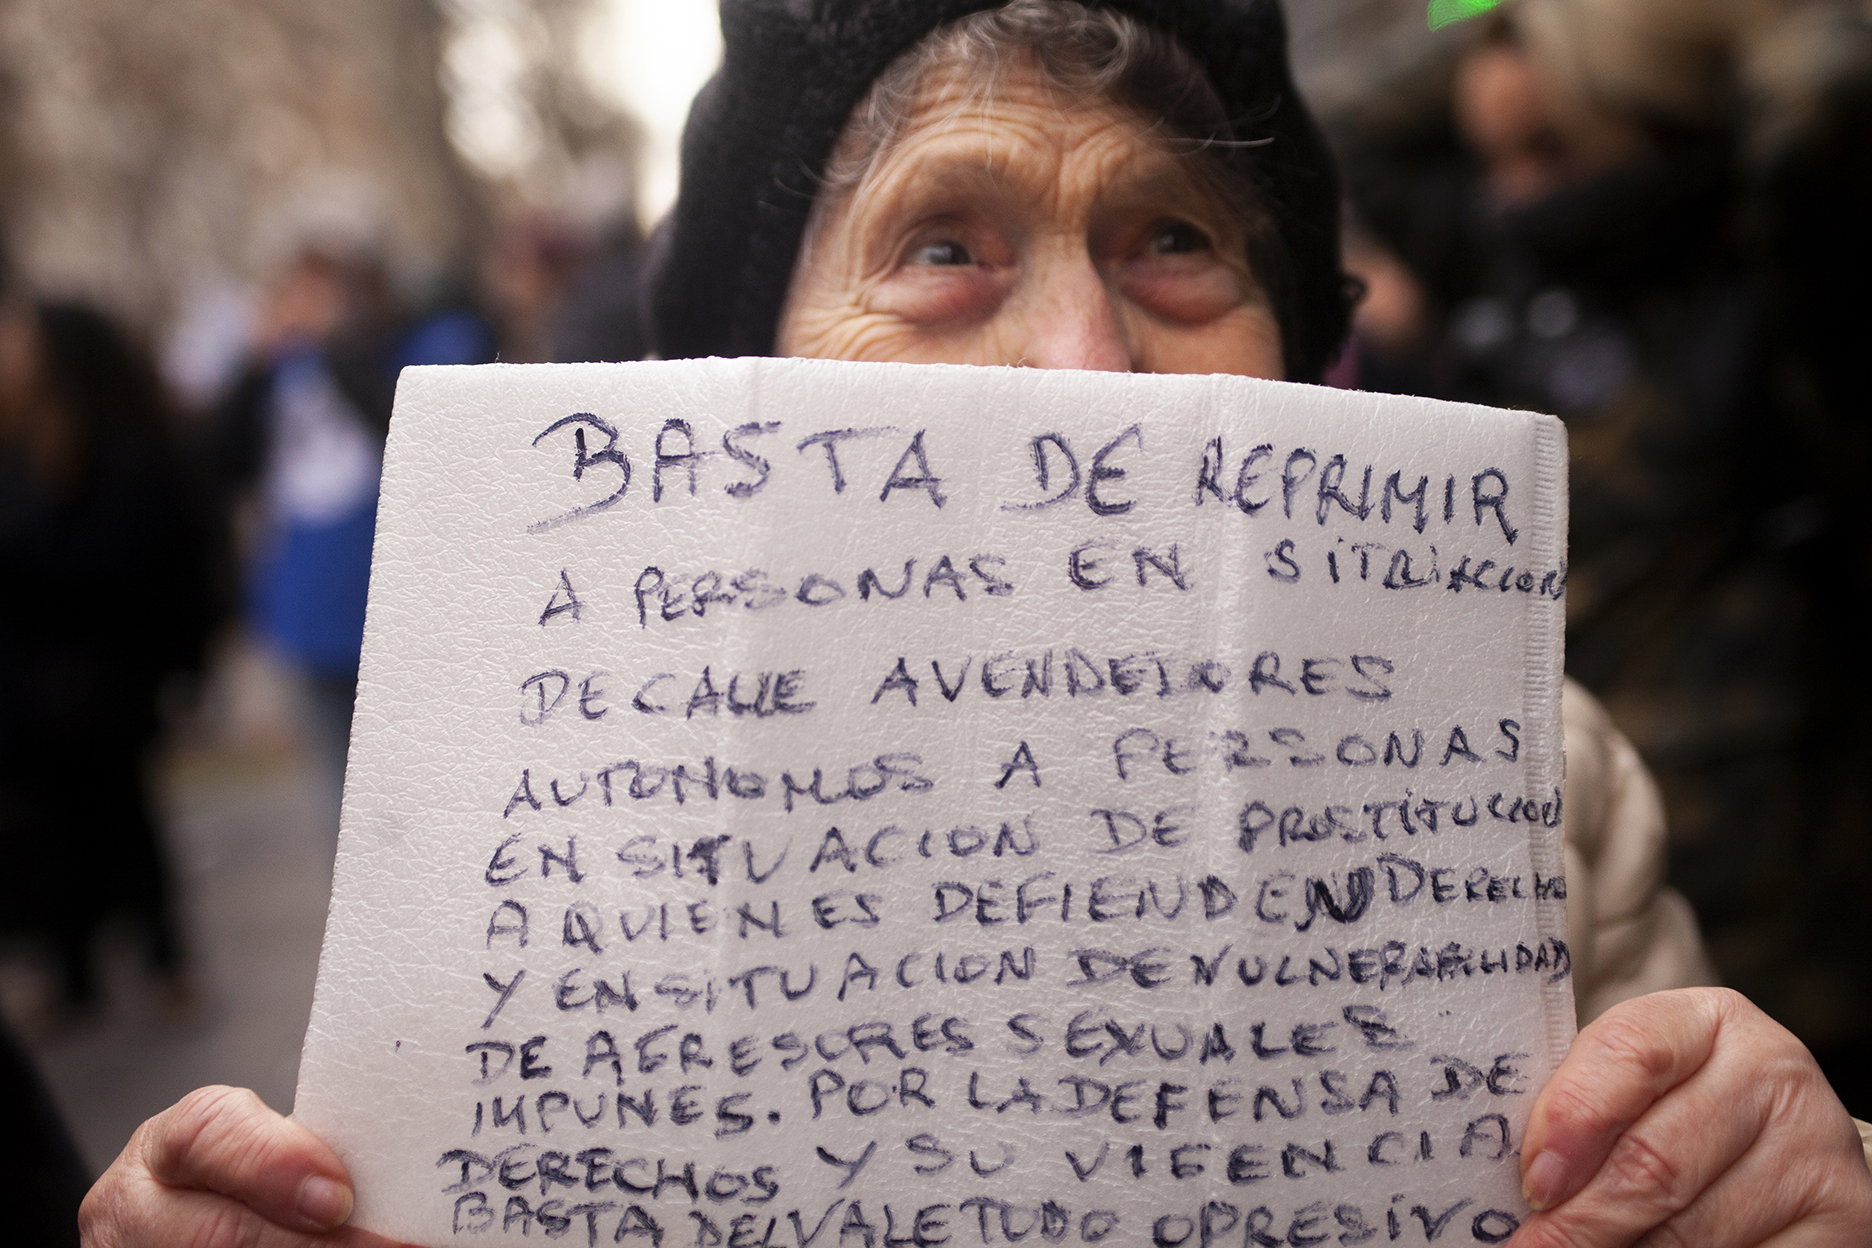 BASTA DE REPRIMIR
A PERSONAS EN SITUACION
DE CALLE A VENDEDORES
AUTONOMOS A PERSONAS
EN SITUACION DE PROSTITUCION
A QUIENES DEFIENDEN DERECHO
Y EN SITUACION DE VULNERABILIDAD
DE AGRESORES SEXUALES
IMPUNES. POR LA DEFENSA DE
DERECHOS Y SU VIGENCIA
BASTA DEL VALE TUDO OPRESIVO